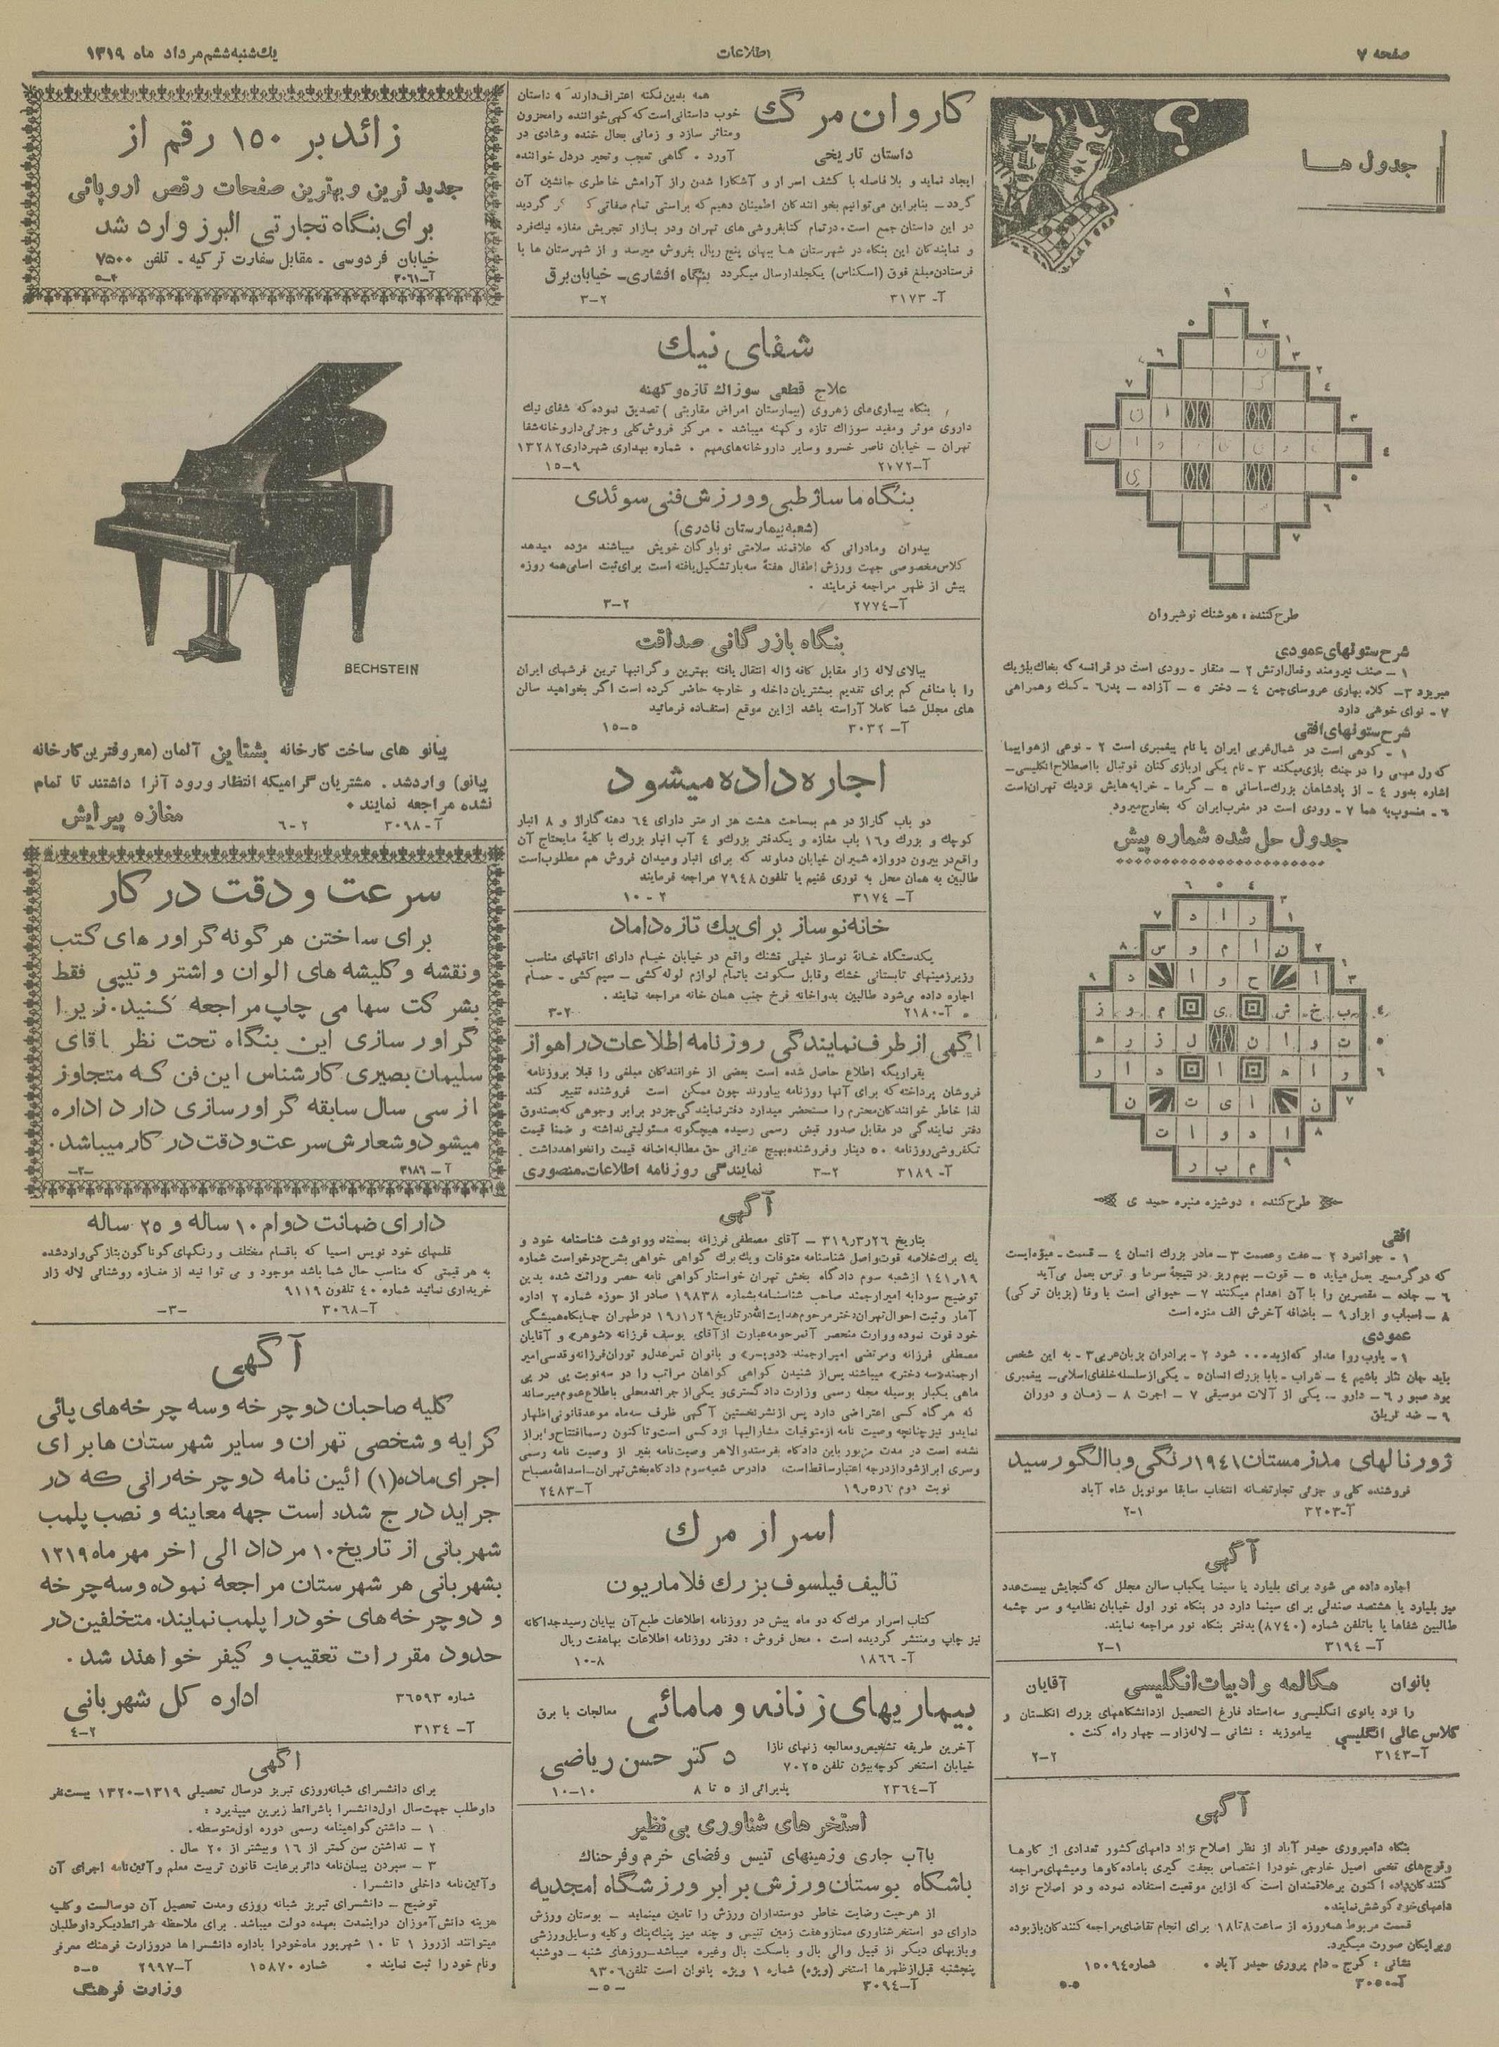 صفحه ۷
اطلاعات
یک‌شنبه ششم مرداد ماه ۱۳۱۹
جدول ها
طرح کننده ، هوشنك نوشیروان
شرح ستونهای عمودی
۱ – صنف نیرومند وفعال ارتش ۲ – منقار – رودی است در فرانسه که بخاك بلژیك
میریزد ۳– کلاه بهاری عروسای چمن ٤ – دختر ٥ – آزاده – پدر ٦ – کمك وهمراهی
۷ – نوای خوشی دارد
شرح ستونهای افقی
۱ – کوهی است در شمال غربی ایران یا نام پیغمبری است ۲ – نوعی از هواپیما
که رل مهمی را در جنك بازی میکند ۳ – نام یکی از بازی کنان فوتبال باصطلاح انگلیسی–
اشاره بدور ٤ – از پادشاهان بزرك ساسانی ٥ – گرما – خرابه هایش نزدیك تهران است
٦ – منسوب به هما ۷ – رودی است در مغرب ایران که بخارج میرود
جدول حل شده شماره پیش
طرح کننده ، دوشیزه منیره حمیدی
افقی
۱ – جوانمرد ۲ – عفت و عصمت ۳ – مادر بزرك انسان ٤ – قسمت – میوه ایست
که در گرمسیر بعمل میاید ٥ – قوت – بهم ریز در نتیجهٔ سرما و ترس بعمل می‌آید
٦ – جاده – مقصرین را با آن اعدام میکنند ۷ – حیوانی است با وفا (بزبان ترکی)
۸ – اسباب و ابزار ۹ – باضافه آخرش الف منزه است
عمودی
۱ – یارب روا مدار که از بد... شود ۲ – برادران بزبان عربی ۳ – به این شخص
باید جان نثار باشیم ٤ – شراب – بابا بزرك انسان ٥ – یکی از سلسله خلفای اسلامی – پیغمبری
بود صبور ٦ – دارو – یکی از آلات موسیقی ۷ – اجرت ۸ – زمان و دوران
۹ – ضد تریاق
ژورنالهای مد زمستان ۱۹٤۱ رنگی و با الگو رسید
فروشنده کلی و جزئی تجارتخانه انتخاب سابقا مونوپل شاه آباد
آ–۳۲۰۳ ۱–۲
آگهی
اجاره داده می شود برای بلیارد یا سینما یکباب سالن مجلل که گنجایش بیست عدد
میز بلیارد یا هشتصد صندلی برای سینما دارد در بنگاه نور اول خیابان نظامیه و سر چشمه
طالبین شفاها یا باتلفن شماره (۸۷٤۰) بدفتر بنگاه نور مراجعه نمایند.
آ– ۳۱۹٤ ۱–۲
بانوان مکالمه و ادبیات انگلیسی آقایان
را نزد بانوی انگلیسی و سه استاد فارغ التحصیل از دانشگاههای بزرك انگلستان و
کلاس عالی انگلیسی بیاموزید : نشانی – لاله زار – چهار راه کنت .
آ–۳۱٤۳ ۲–۲
آگهی
بنگاه دامپروری حیدر آباد از نظر اصلاح نژاد دامهای کشور تعدادی از گاوها
وقوچهای تخمی اصیل خارجی خودرا اختصاص بجفت گیری باماده گاوها ومیشهای مراجعه
کنندگان داده اکنون برعلاقمندان است که از این موقعیت استفاده نموده و در اصلاح نژاد
دامهای خود کوشش نمایند.
قسمت مربوط همه روزه از ساعت ۸ تا ۱۸ برای انجام تقاضای مراجعه کنندگان باز بوده
وبرایگان صورت میگیرد.
نشانی : کرج – دام پروری حیدر آباد . شماره ۱٥۰۹٤
آ–۳۰٥۰ ٥–٥
کاروان مرگ
داستان تاریخی
همه بدین نکته اعتراف دارند که داستان
خوب داستانی است که گهی خواننده رامحزون
ومتاثر سازد و زمانی بحال خنده وشادی در
آورد . گاهی تعجب وتحیر در دل خواننده
ایجاد نماید و بلافاصله با کشف اسرار و آشکارا شدن راز آرامش خاطری جانشین آن
گردد – بنابراین می‌توانیم بخوانندگان اطمینان دهیم که براستی تمام صفاتی که ذکر گردید
در این داستان جمع است. در تمام کتابفروشی های تهران ودر بازار تجریش مغازه نیك فرد
و نمایندگان این بنگاه در شهرستان ها ببهای پنج ریال بفروش میرسد و از شهرستان ها با
فرستادن مبلغ فوق (اسکناس) یکجلد ارسال میگردد بنگاه افشاری – خیابان برق
آ– ۳۱۷۳ ۲–۳
شفای نیك
علاج قطعی سوزاك تازه و کهنه
بنگاه بیماری های زهروی (بیمارستان امراض مقاربتی ) تصدیق نموده که شفای نیك
داروی موثر ومفید سوزاك تازه و کهنه میباشد . مرکز فروش کلی و جزئی داروخانه شفا
تهران – خیابان ناصر خسرو وسایر داروخانه های مهم . شماره بهداری شهرداری ۱۳۲۸۲
آ–۲۰۷۲ ۹–۱٥
بنگاه ماساژ طبی و ورزش فنی سوئدی
(شعبه بیمارستان نادری)
پدران ومادرانی که علاقمند سلامتی نوباوگان خویش میباشند مژده میدهد
کلاس مخصوصی جهت ورزش اطفال هفتهٔ سه بار تشکیل یافته است برای ثبت اسامی همه روزه
پیش از ظهر مراجعه فرمایند .
آ–۲۷۷٤ ۲–۳
بنگاه بازرگانی صداقت
ببالای لاله زار مقابل کافه ژاله انتقال یافته بهترین و گرانبها ترین فرشهای ایران
را با منافع کم برای تقدیم بمشتریان داخله و خارجه حاضر کرده است اگر بخواهید سالن
های مجلل شما کاملا آراسته باشد از این موقع استفاده فرمائید
آ–۳۰۳۲ ٥–۱٥
اجاره داده میشود
دو باب گاراژ در هم بمساحت هشت هزار متر دارای ٦٤ دهنه گاراژ و ۸ انبار
کوچك و بزرك و۱٦ باب مغازه و یکدفتر بزرك و ٤ آب انبار بزرك با کلیهٔ مایحتاج آن
واقع در بیرون دروازه شمیران خیابان دماوند که برای انبار ومیدان فروش هم مطلوب است
طالبین به همان محل به نوری غنیم یا تلفون ۷۹٤۸ مراجعه فرمایند
آ– ۳۱۷٤ ۲ – ۱۰
خانه نو ساز برای یك تازه داماد
یکدستگاه خانهٔ نوساز خیلی قشنك واقع در خیابان خیام دارای اتاقهای مناسب
وزیرزمینهای تابستانی خشك وقابل سکونت باتمام لوازم لوله کشی – سیم کشی – حمام
اجاره داده می‌شود طالبین بدواخانه فرخ جنب همان خانه مراجعه نمایند .
آ–۲۱۸۰ ۲–۳
آگهی از طرف نمایندگی روزنامه اطلاعات در اهواز
بقراریکه اطلاع حاصل شده است بعضی از خوانندگان مبلغی را قبلا بروزنامه
فروشان پرداخته که برای آنها روزنامه بیاورند چون ممکن است فروشنده تغییر کند
لذا خاطر خوانندگان محترم را مستحضر میدارد دفتر نمایندگی جز در برابر وجوهی که بصندوق
دفتر نمایندگی در مقابل صدور قبض رسمی رسیده هیچگونه مسئولیتی نداشته و ضمنا قیمت
تکفروشی روزنامه ٥۰ دینار و فروشنده بهیچ عنوانی حق مطالبه اضافه قیمت را نخواهد داشت .
آ– ۳۱۸۹ ۲–۳ نمایندگی روزنامه اطلاعات–منصوری
آگهی
بتاریخ ۲٦ر۳ر۳۱۹ – آقای مصطفی فرزانه بمستند رونوشت شناسنامه خود و
یك برك خلاصه فوت و اصل شناسنامه متوفات و یك برك گواهی خواهی بشرح درخواست شماره
۱۹ر۱٤۱ از شعبه سوم دادگاه بخش تهران خواستار گواهی نامه حصر وراثت شده بدین
توضیح سودابه امیر ارجمند صاحب شناسنامه بشماره ۱۹۸۳۸ صادر از حوزه شماره ۲ اداره
آمار و ثبت احوال تهران دختر مرحوم هدایت الله در تاریخ ۲۹ر۱ر۱۹ در طهران جایگاه همیشگی
خود فوت نموده و وراث منحصر آنمرحومه عبارت از آقای یوسف فرزانه «شوهر» و آقایان
مصطفی فرزانه ومرتضی امیر ارجمند «دو پسر» و بانوان تمر عدل و توران فرزانه و قدسی امیر
ارجمند«سه دختر» میباشند پس از شنیدن گواهی گواهان مراتب را در سه نوبت پی در پی
ماهی یکبار بوسیله مجله رسمی وزارت دادگستری و یکی از جراید محلی باطلاع عموم میرساند
که هر گاه کسی اعتراضی دارد پس از نشر نخستین آگهی ظرف سه ماه موعد قانونی اظهار
نماید و نیز چنانچه وصیت نامه از متوفات مشارالیها نزد کسی است و تا کنون رسما افتتاح و ابراز
نشده است در مدت مزبور باین دادگاه بفرستد والا هر وصیت نامه بغیر از وصیت نامه رسمی
وسری ابراز شود از درجه اعتبار ساقط است، دادرس شعبه سوم دادگاه بخش تهران–اسدالله مصباح
نوبت دوم ٦ر٥ر۱۹ آ–۲٤۸۳
اسرار مرك
تالیف فیلسوف بزرك فلاماریون
کتاب اسرار مرك که دو ماه پیش در روزنامه اطلاعات طبع آن بپایان رسید جداگانه
نیز چاپ ومنتشر گردیده است . محل فروش : دفتر روزنامه اطلاعات بها هفت ریال
آ– ۱۸٦٦ ۸–۱۰
بیماریهای زنانه و مامائی معالجات با برق
آخرین طریقه تشخیص ومعالجه زنهای نازا
خیابان استخر کوچه بیژن تلفن ۷۰۲٥
دکتر حسن ریاضی
آ–۲۳٦٤ پذیرائی از ٥ تا ۸ ۱۰–۱۰
استخر های شناوری بی نظیر
باآب جاری و زمینهای تنیس وفضای خرم و فرحناك
باشگاه بوستان ورزش برابر ورزشگاه امجدیه
از هرحیث رضایت خاطر دوستداران ورزش را تامین مینماید – بوستان ورزش
دارای دو استخر شناوری ممتاز وهفت زمین تنیس و چند میز پینك پنك و کلیه وسایل ورزشی
و بازیهای دیگر از قبیل والی بال و باسکت بال وغیره میباشد – روزهای شنبه – دوشنبه
پنجشنبه قبل از ظهرها استخر (ویژه) شماره ۱ ویژه بانوان است تلفن ۹۳۰٦
آ–۳۰۹٤ –٥–
زائد بر ۱٥۰ رقم از
جدید ترین و بهترین صفحات رقص اروپائی
برای بنگاه تجارتی البرز وارد شد
خیابان فردوسی . مقابل سفارت ترکیه . تلفن ۷٥۰۰
آ–۳۰٦۱ ۴–٥
BECHSTEIN
پیانو های ساخت کارخانه بشتاین آلمان (معروفترین کارخانه
پیانو) وارد شد . مشتریان گرامیکه انتظار ورود آنرا داشتند تا تمام
نشده مراجعه نمایند . مغازه پیرایش
آ– ۳۰۹۸ ۲–٦
سرعت و دقت در کار
برای ساختن هرگونه گراور های کتب
ونقشه و کلیشه های الوان و اشتر و تیپی فقط
بشرکت سهامی چاپ مراجعه کنید. زیرا
گراور سازی این بنگاه تحت نظر آقای
سلیمان بصیری کارشناس این فن که متجاوز
از سی سال سابقه گراور سازی دارد اداره
میشود و شعارش سرعت و دقت در کار میباشد.
آ – ۳۱۸٦ –۲–
دارای ضمانت دوام ۱۰ ساله و ۲٥ ساله
قلمهای خود نویس اسمیا که باقسام مختلف و رنگهای گوناگون بتازگی وارد شده
به هر قیمتی که مناسب حال شما باشد موجود و می توانید از مغازه روشنائی لاله زار
خریداری نمائید شماره ٤۰ تلفون ۹۱۱۹
آ–۳۰٦۸ –۳–
آگهی
کلیه صاحبان دوچرخه وسه چرخه های پائی
کرایه و شخصی تهران و سایر شهرستان ها برای
اجرای ماده (۱) آئین نامه دوچرخه رانی که در
جراید درج شده است جهه معاینه و نصب پلمب
شهربانی از تاریخ ۱۰ مرداد الی آخر مهر ماه ۱۳۱۹
بشهربانی هر شهرستان مراجعه نموده و سه چرخه
و دوچرخه های خودرا پلمب نمایند. متخلفین در
حدود مقررات تعقیب و کیفر خواهند شد .
شماره ۳٦٥۹۳ اداره کل شهربانی
آ– ۳۱۳٤ ۲–٤
آگهی
برای دانشسرای شبانه روزی تبریز در سال تحصیلی ۱۳۱۹–۱۳۲۰ بیست نفر
داوطلب جهت سال اول دانشسرا باشرائط زیرین میپذیرد :
۱ – داشتن گواهینامه رسمی دوره اول متوسطه .
۲ – نداشتن سن کمتر از ۱٦ وبیشتر از ۲۰ سال .
۳ – سپردن پیمان نامه دائر برعایت قانون تربیت معلم و آئین نامه اجرای آن
و آئین نامه داخلی دانشسرا .
توضیح – دانشسرای تبریز شبانه روزی ومدت تحصیل آن دوسالست و کلیه
هزینه دانش آموزان دراینمدت بعهده دولت میباشد . برای ملاحظه شرائط دیگر داوطلبان
میتوانند از روز ۱ تا ۱۰ شهریور ماه خودرا باداره دانشسرا ها دروزارت فرهنك معرفی
ونام خود را ثبت نمایند . شماره ۱٥۸۷۰ آ–۲۹۹۷ ٥–٥
وزارت فرهنگ